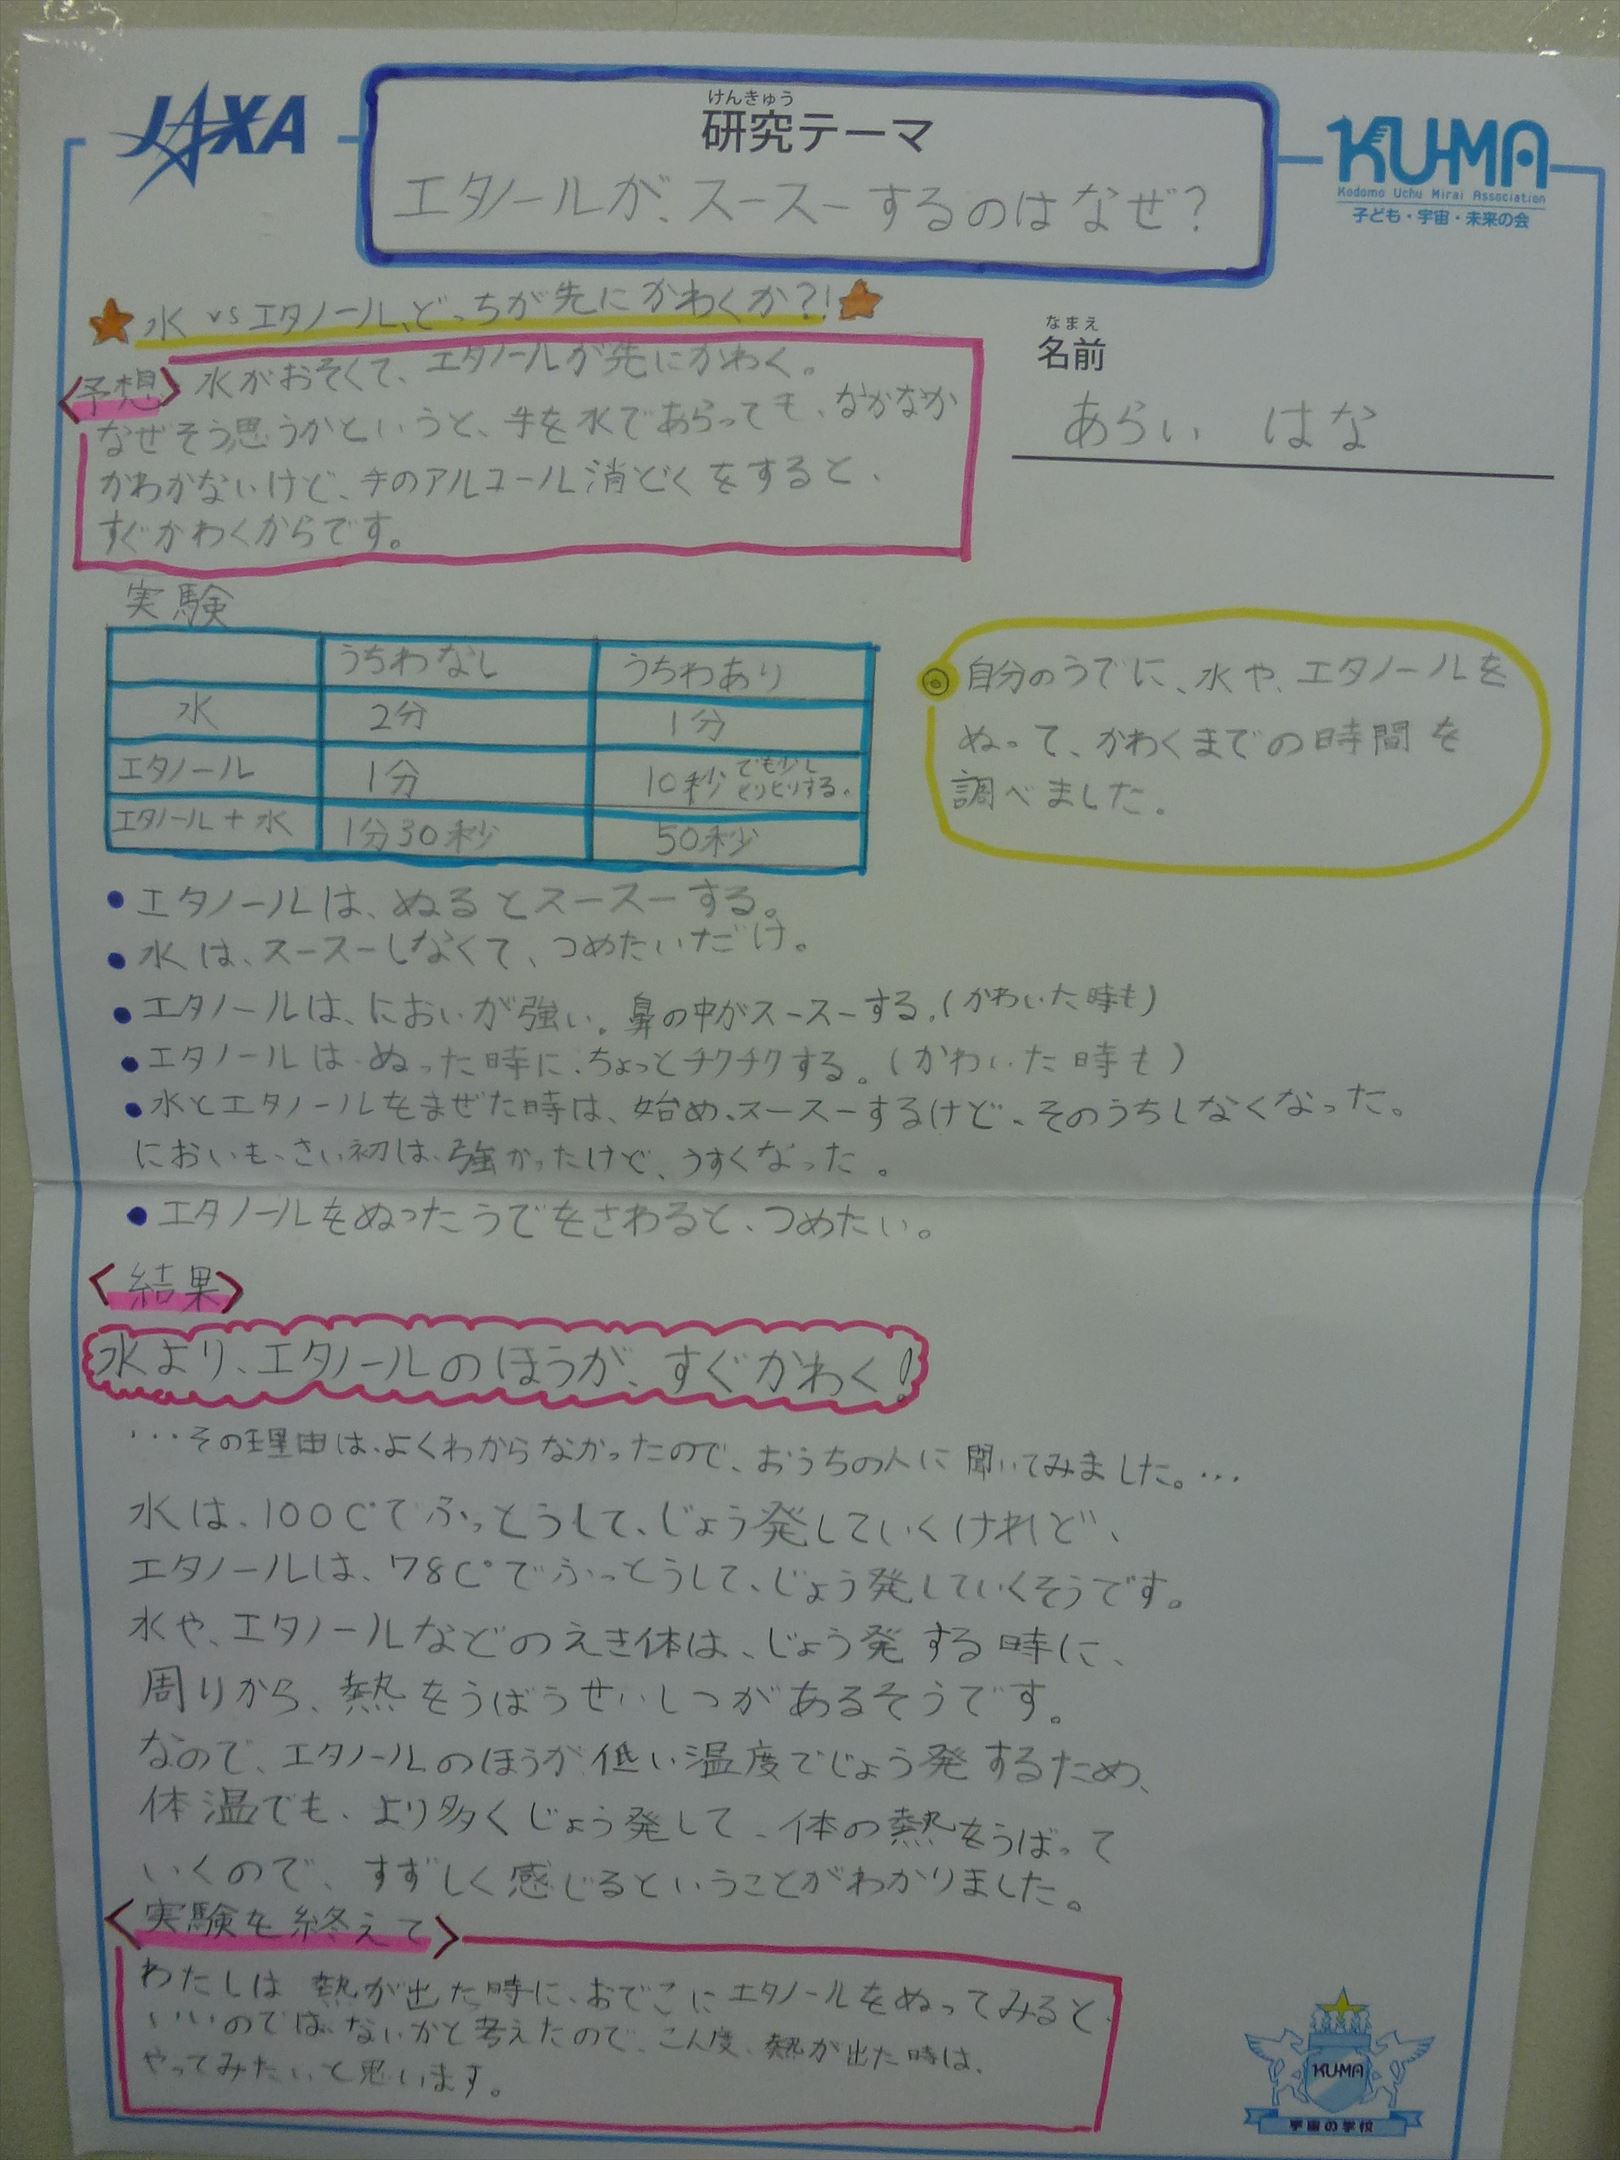 JAXA
けんきゅう
研究テーマ
エタノールが、スースーするのはなぜ?
KUMA
Kodomo Uchu Mirai Association
子ども・宇宙・未来の会
水vsエタノール、どっちが先にかわくか?!
なまえ
名前
あらい はな
<予想> 水がおそくて、エタノールが先にかわく。
なぜそう思うかというと、手を水であらっても、なかなか
かわかないけど、手のアルコール消どくをすると、
すぐかわくからです。
実験
うちわなし うちわあり
水 2分 1分
エタノール 1分 10秒 でも少しヒリヒリする。
エタノール+水 1分30秒 50秒
◎自分のうでに、水や、エタノールを
ぬって、かわくまでの時間を
調べました。
・エタノールは、ぬるとスースーする。
・水は、スースーしなくて、つめたいだけ。
・エタノールは、においが強い。鼻の中がスースーする。(かわいた時も)
・エタノールは、ぬった時に、ちょっとチクチクする。(かわいた時も)
・水とエタノールをまぜた時は、始め、スースーするけど、そのうちしなくなった。
においも、さい初は、強かったけど、うすくなった。
・エタノールをぬったうでをさわると、つめたい。
<結果>
水より、エタノールのほうが、すぐかわく!
…その理由は、よくわからなかったので、おうちの人に聞いてみました。…
水は、100C°でふっとうして、じょう発していくけれど、
エタノールは、78C°でふっとうして、じょう発していくそうです。
水や、エタノールなどのえき体は、じょう発する時に、
周りから、熱をうばうせいしつがあるそうです。
なので、エタノールのほうが低い温度でじょう発するため、
体温でも、より多くじょう発して、体の熱をうばって
いくので、すずしく感じるということがわかりました。
<実験を終えて>
わたしは熱が出た時に、おでこにエタノールをぬってみると、
いいのではないかと考えたので、こん度、熱が出た時は、
やってみたいと思います。
KUMA
宇宙の学校